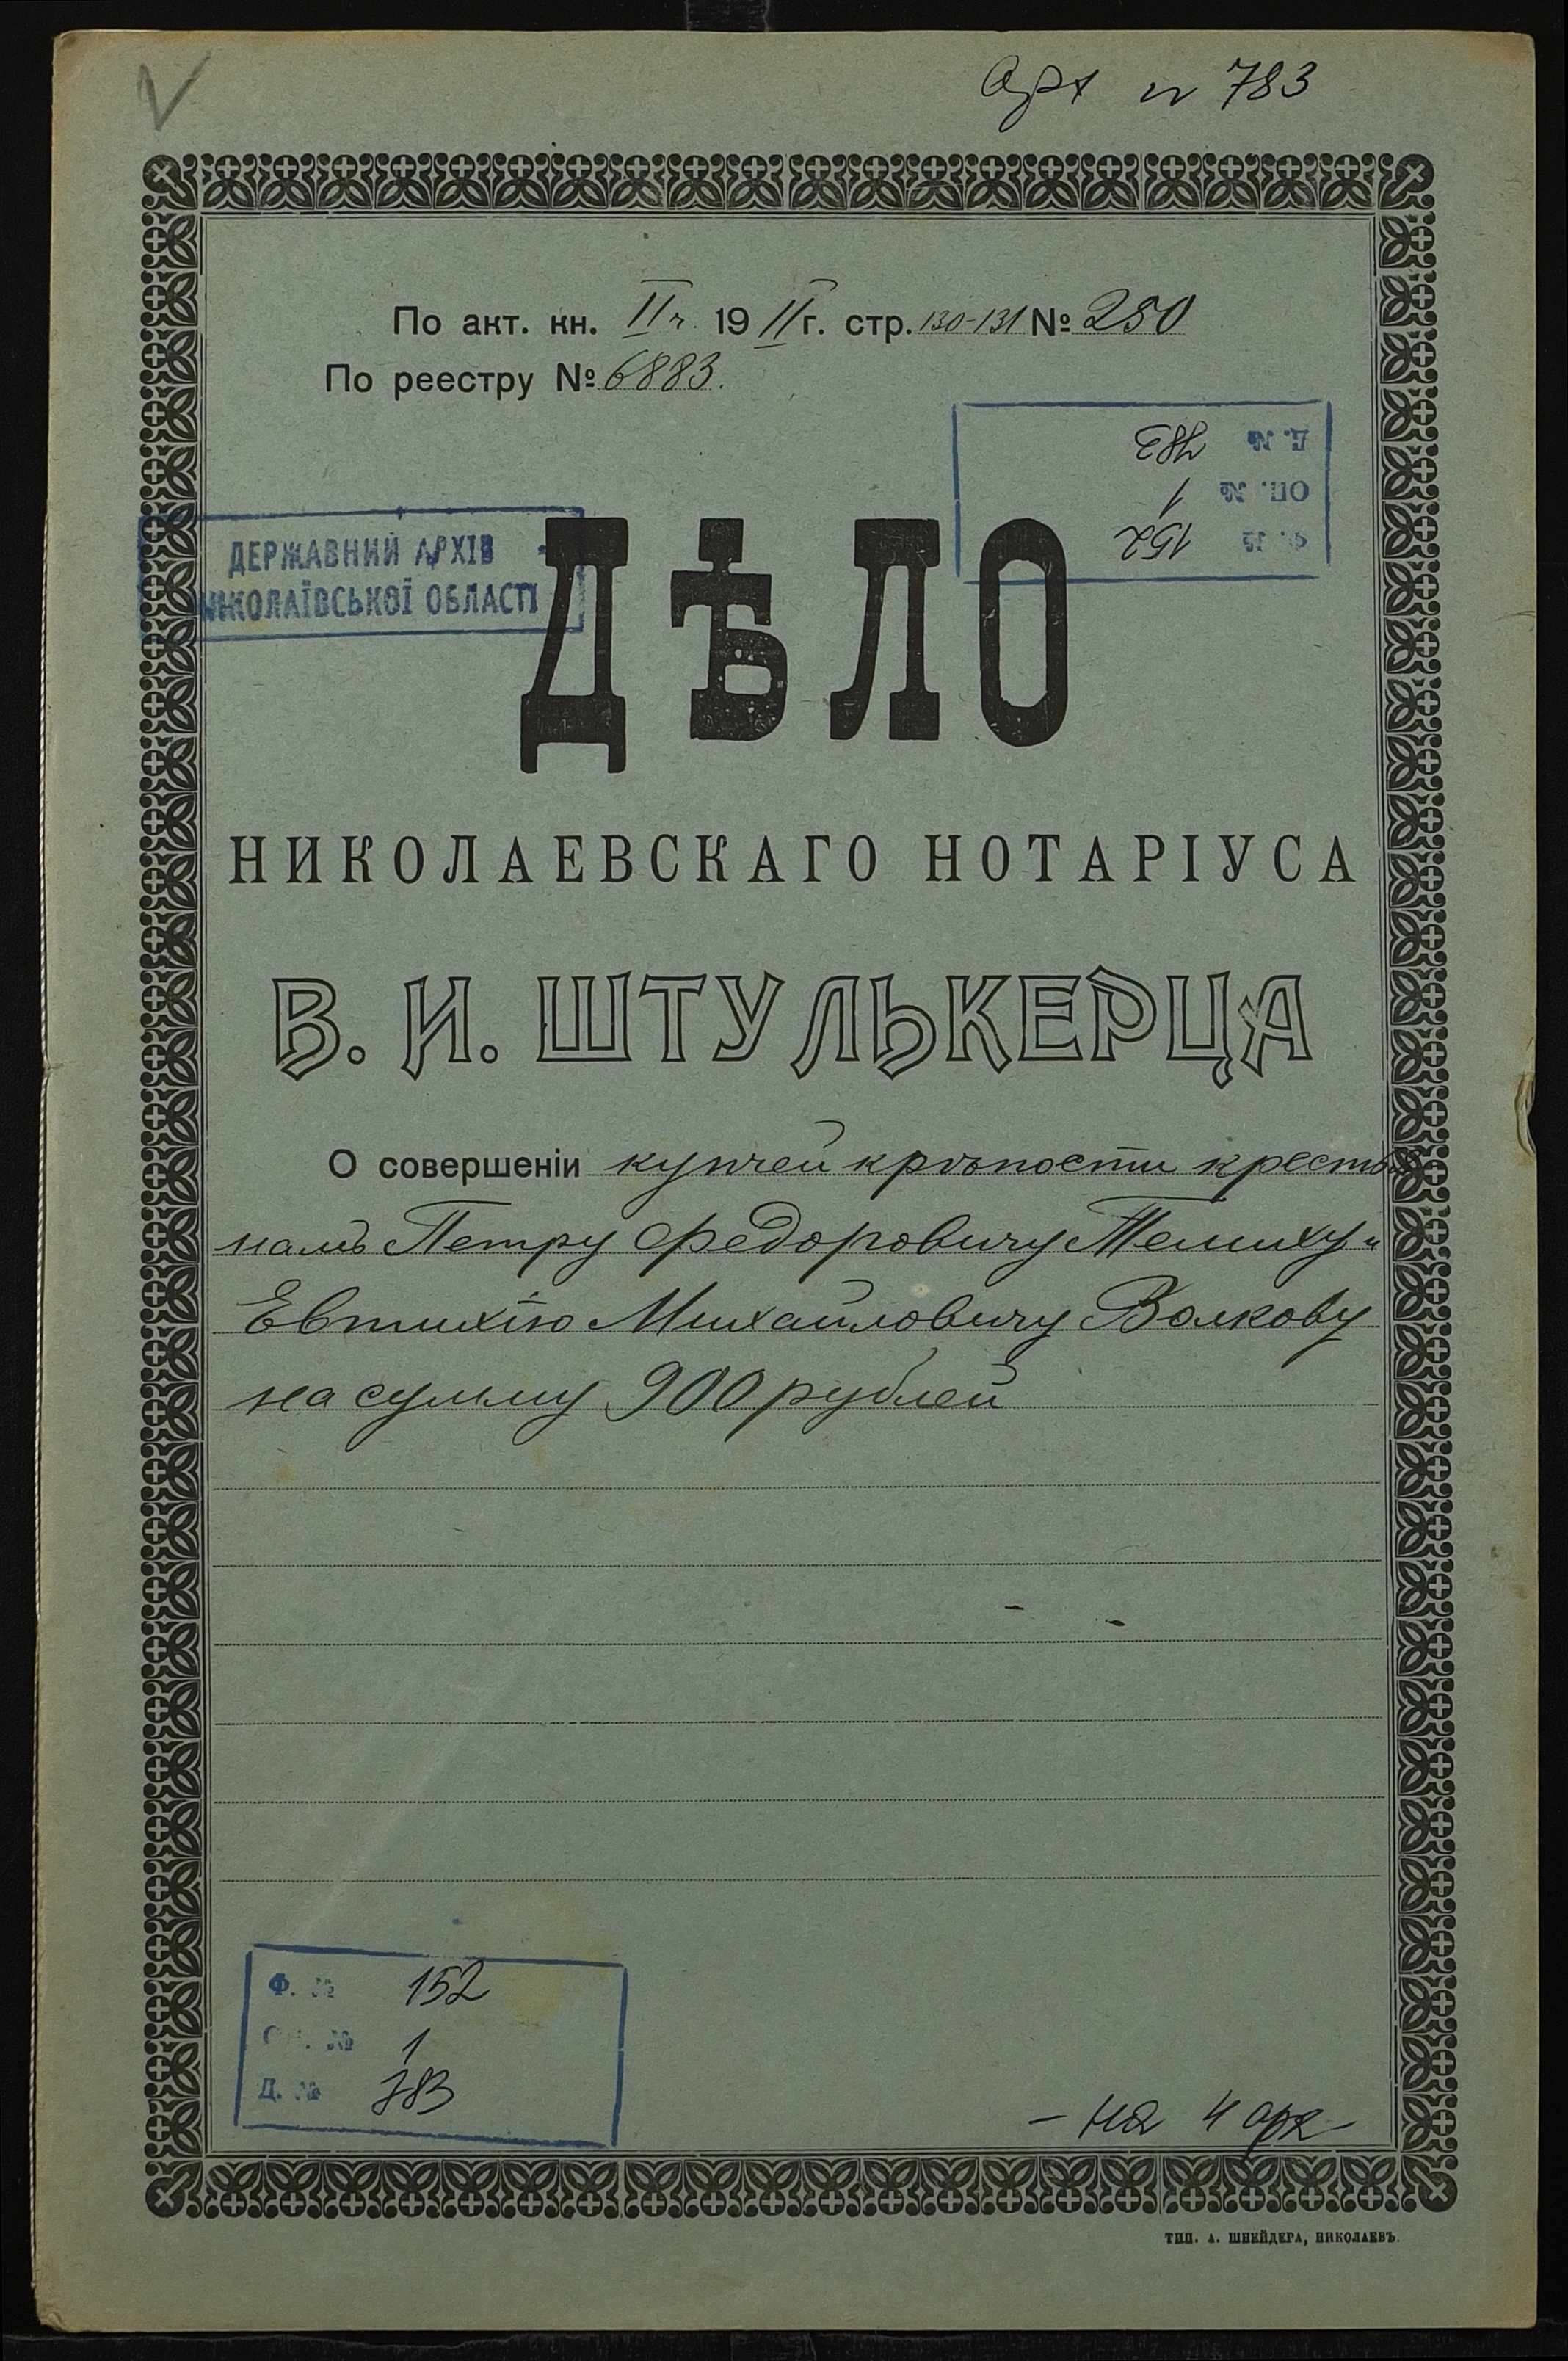 Арх № 783
По акт. кн. II ч. 19 11 г. стр. 130-131 № 250
По реестру № 6883.
Д. № 783
ОП. № 1
Ф. № 152
ДЕРЖАВНИЙ АРХІВ
МИКОЛАЇВСЬКОЇ ОБЛАСТІ
ДѢЛО
НИКОЛАЕВСКАГО НОТАРІУСА
В. И. ШТУЛЬКЕРЦА
О совершеніи купчей крѣпости крестья
намъ Петру Федоровичу и
Евтихію Михайловичу Волкову
на сумму 900 рублей
Ф. № 152
ОП. № 1
Д. № 783
- на 4 арк -
ТИП. А. ШНЕЙДЕРА, НИКОЛАЕВЪ.